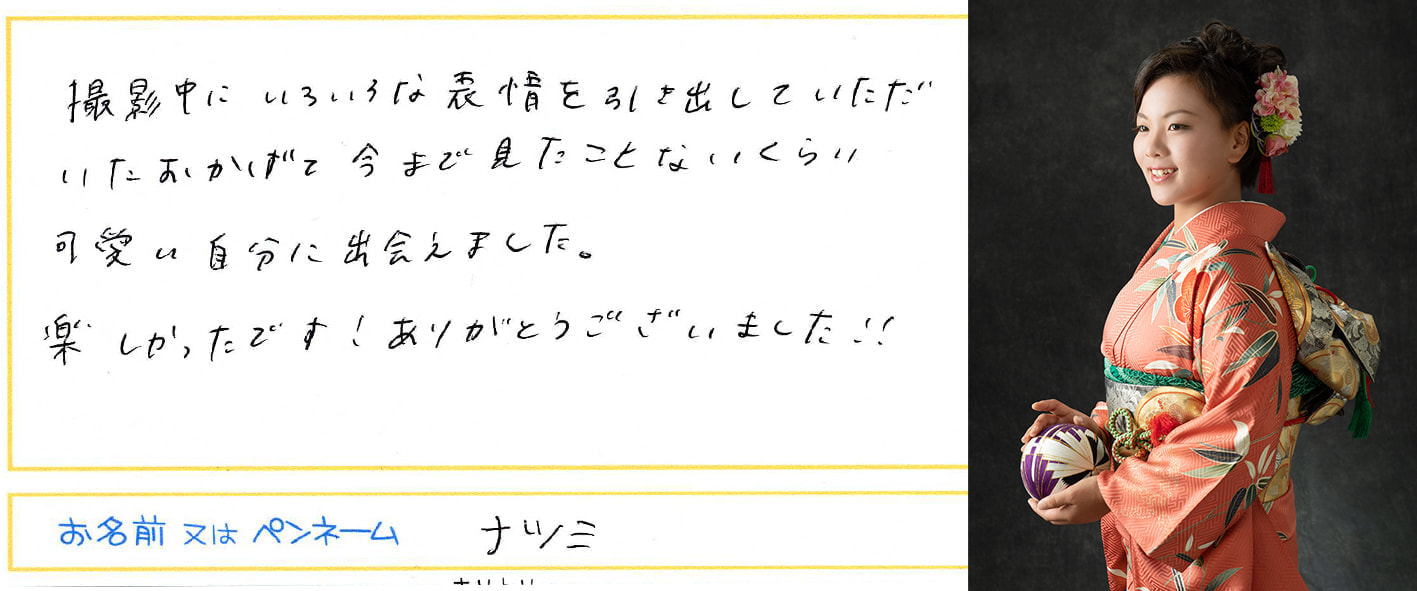 撮影中にいろいろな表情を引き出していただ
いたおかげで今まで見たことないくらい
可愛い自分に出会えました。
楽しかったです!ありがとうございました!!
お名前 又は ペンネーム ナツミ